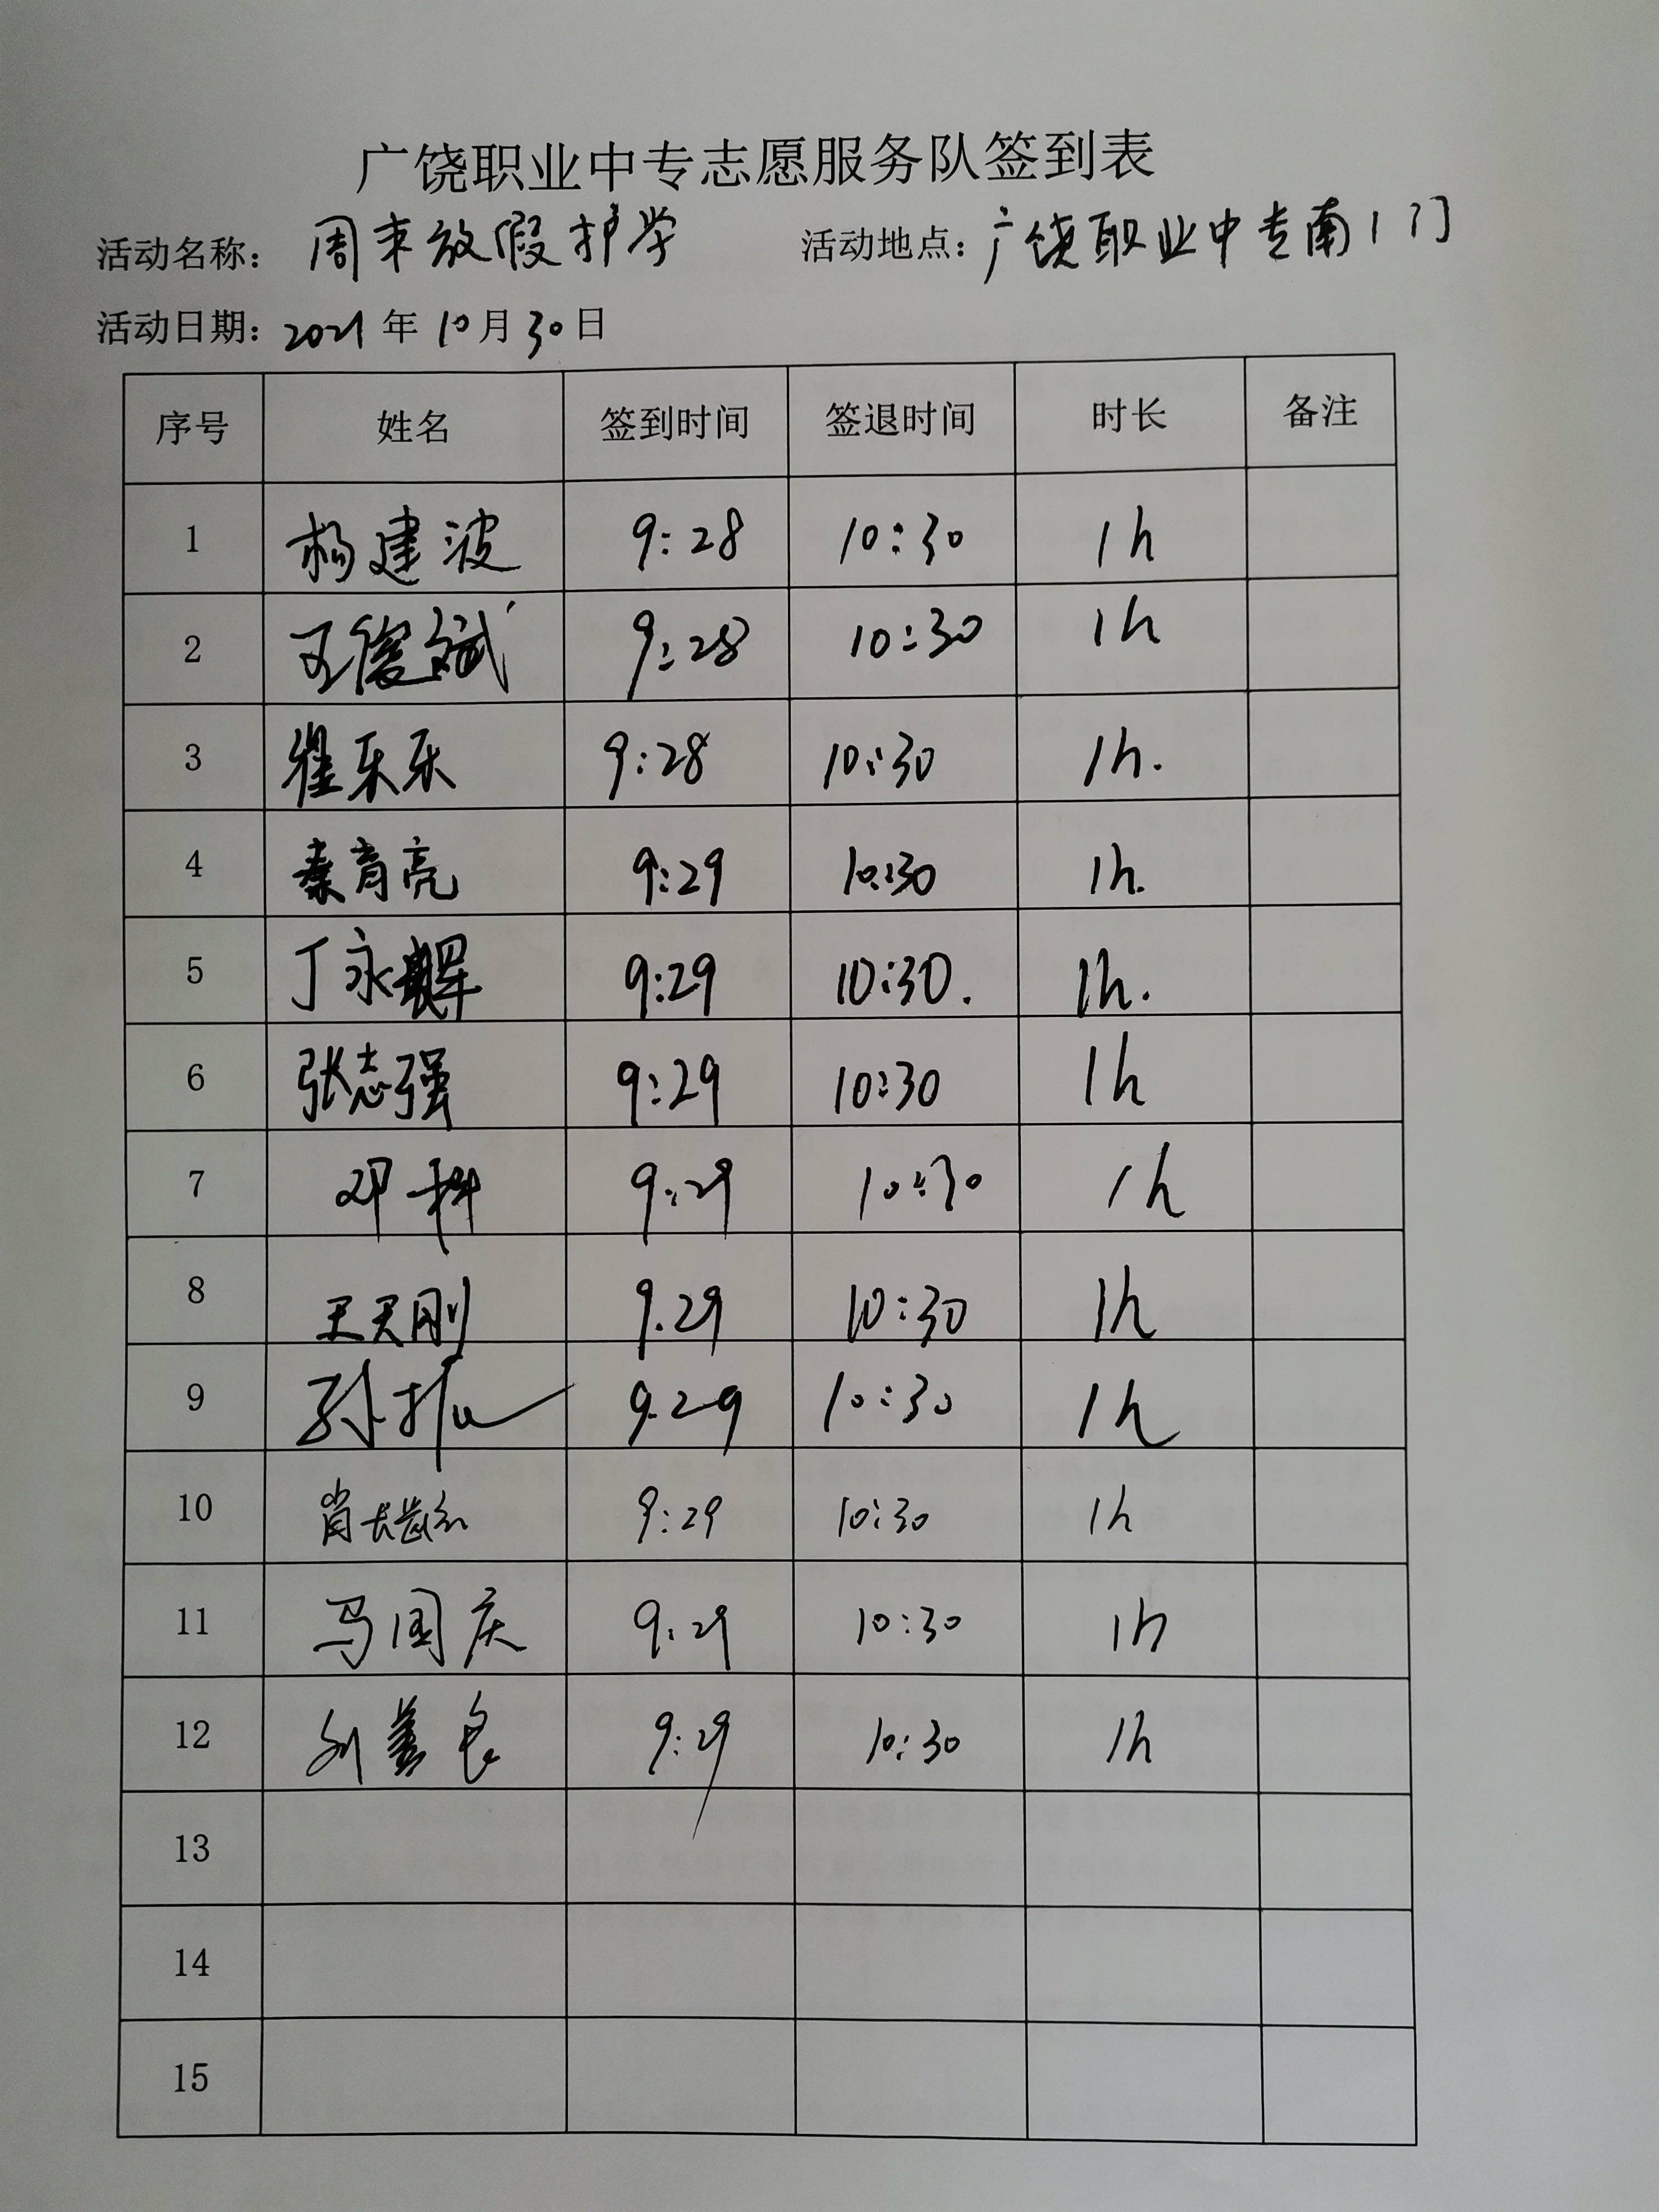 广饶职业中专志愿服务队签到表
活动名称: 周末放假护学 活动地点: 广饶职业中专南门
活动日期: 2021年10月30日
序号 姓名 签到时间 签退时间 时长 备注
1 杨建波 9:28 10:30 1h
2 王俊斌 9:28 10:30 1h
3 崔乐乐 9:28 10:30 1h.
4 秦育亮 9:29 10:30 1h.
5 丁永辉 9:29 10:30. 1h.
6 张志强 9:29 10:30 1h
7 邓科 9:29 10:30 1h
8 王天刚 9:29 10:30 1h
9 孙 9:29 10:30 1h
10 肖 9:29 10:30 1h
11 马国庆 9:29 10:30 1h
12 刘善良 9:29 10:30 1h
13
14
15